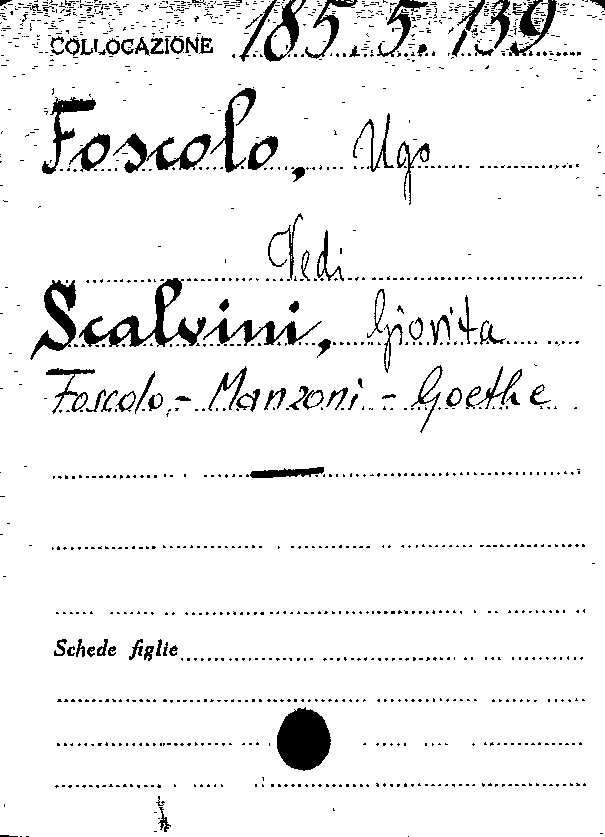 COLLOCAZIONE 185.5.139
Foscolo, Ugo
Vedi
Scalvini, Giovita
Foscolo - Manzoni - Goethe
Schede figlie